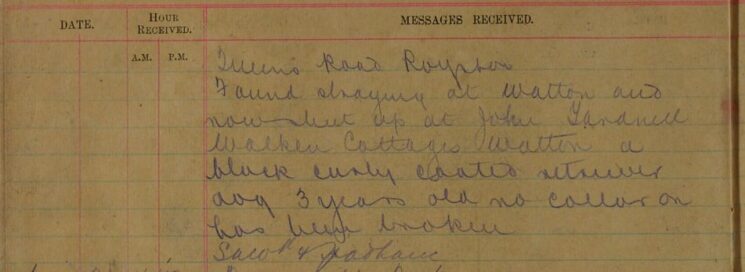 DATE. HOUR RECEIVED. MESSAGES RECEIVED.
A.M. P.M.
Queens Road Royston
Found straying at Watton and
now shut up at John
Cottages Watton a
black curly coated retriever
dog 3 years old no collar on
has been broken